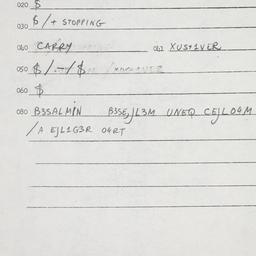 020 $
030 $ / + STOPPING
040 CARRY 041 XUS+1VER
050 $ / - / $
060 $
080 B3SALMIN B3SE,JL3M UNEQ CEJLO4M
/A EJL1G3R O4RT